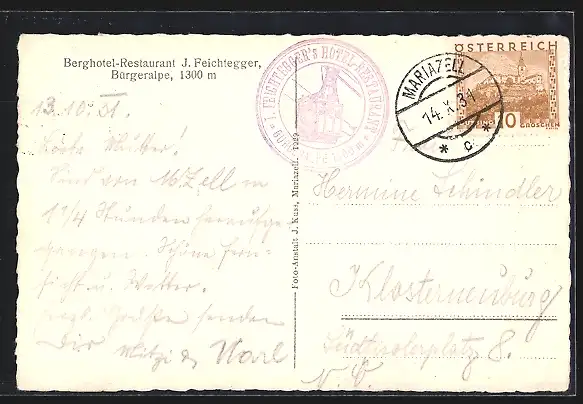 Berghotel-Restaurant J. Feichtegger,
Bürgeralpe, 1300 m
J. FEICHTEGGER's HOTEL-RESTAURANT
MARIAZELL
14.X.31
* C *
ÖSTERREICH
10 GROSCHEN
13.10.31.
Liebe Mutter!
Sind von M.Zell in
1 1/4 Stunden heraufge-
gangen. Schöne Fern-
sicht u. Wetter.
Grüße senden
Dir Mitzi & Karl
Foto-Anstalt J. Kuss, Mariazell. 1929
Hermine Schindler
Klosterneuburg
Südtirolerplatz 8.
N.Ö.